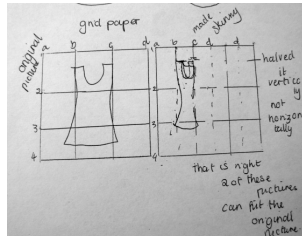 grid paper
original
picture
made
skinny
a b c d
a b c d d
2
3
4
1
2
3
4
halved
it
vertica
ly
not
horizon
tally
that is right
2 of these
pictures
can fit the
original
picture